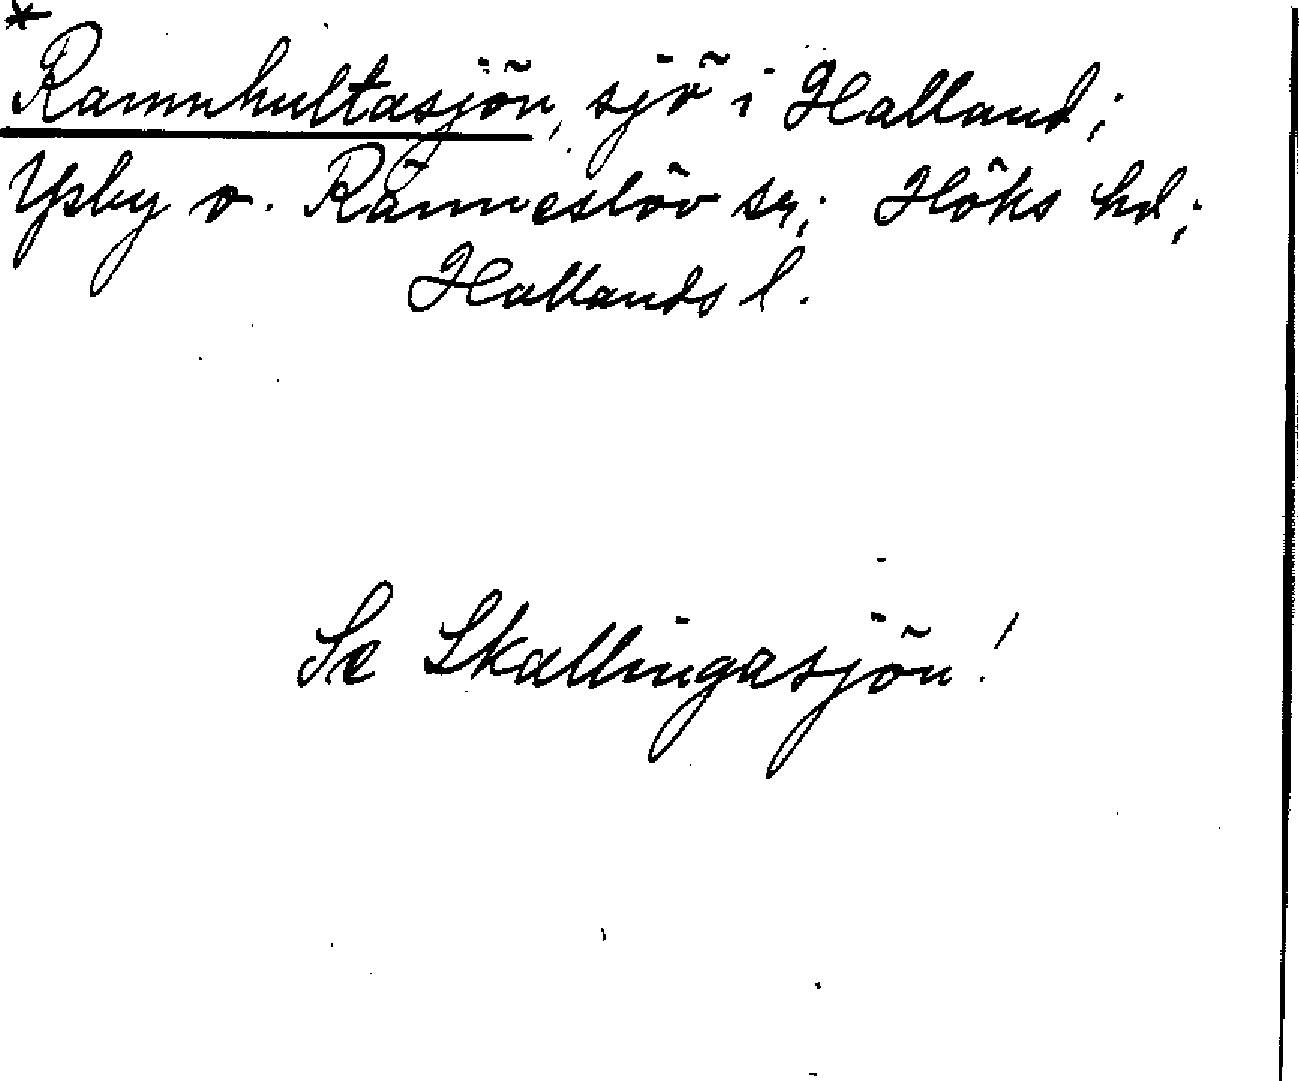 *
Rannhultasjön, sjö i Halland;
Ysby o. Ränneslöv sr; Höks hd;
Hallands l.
Se Skallingasjön!